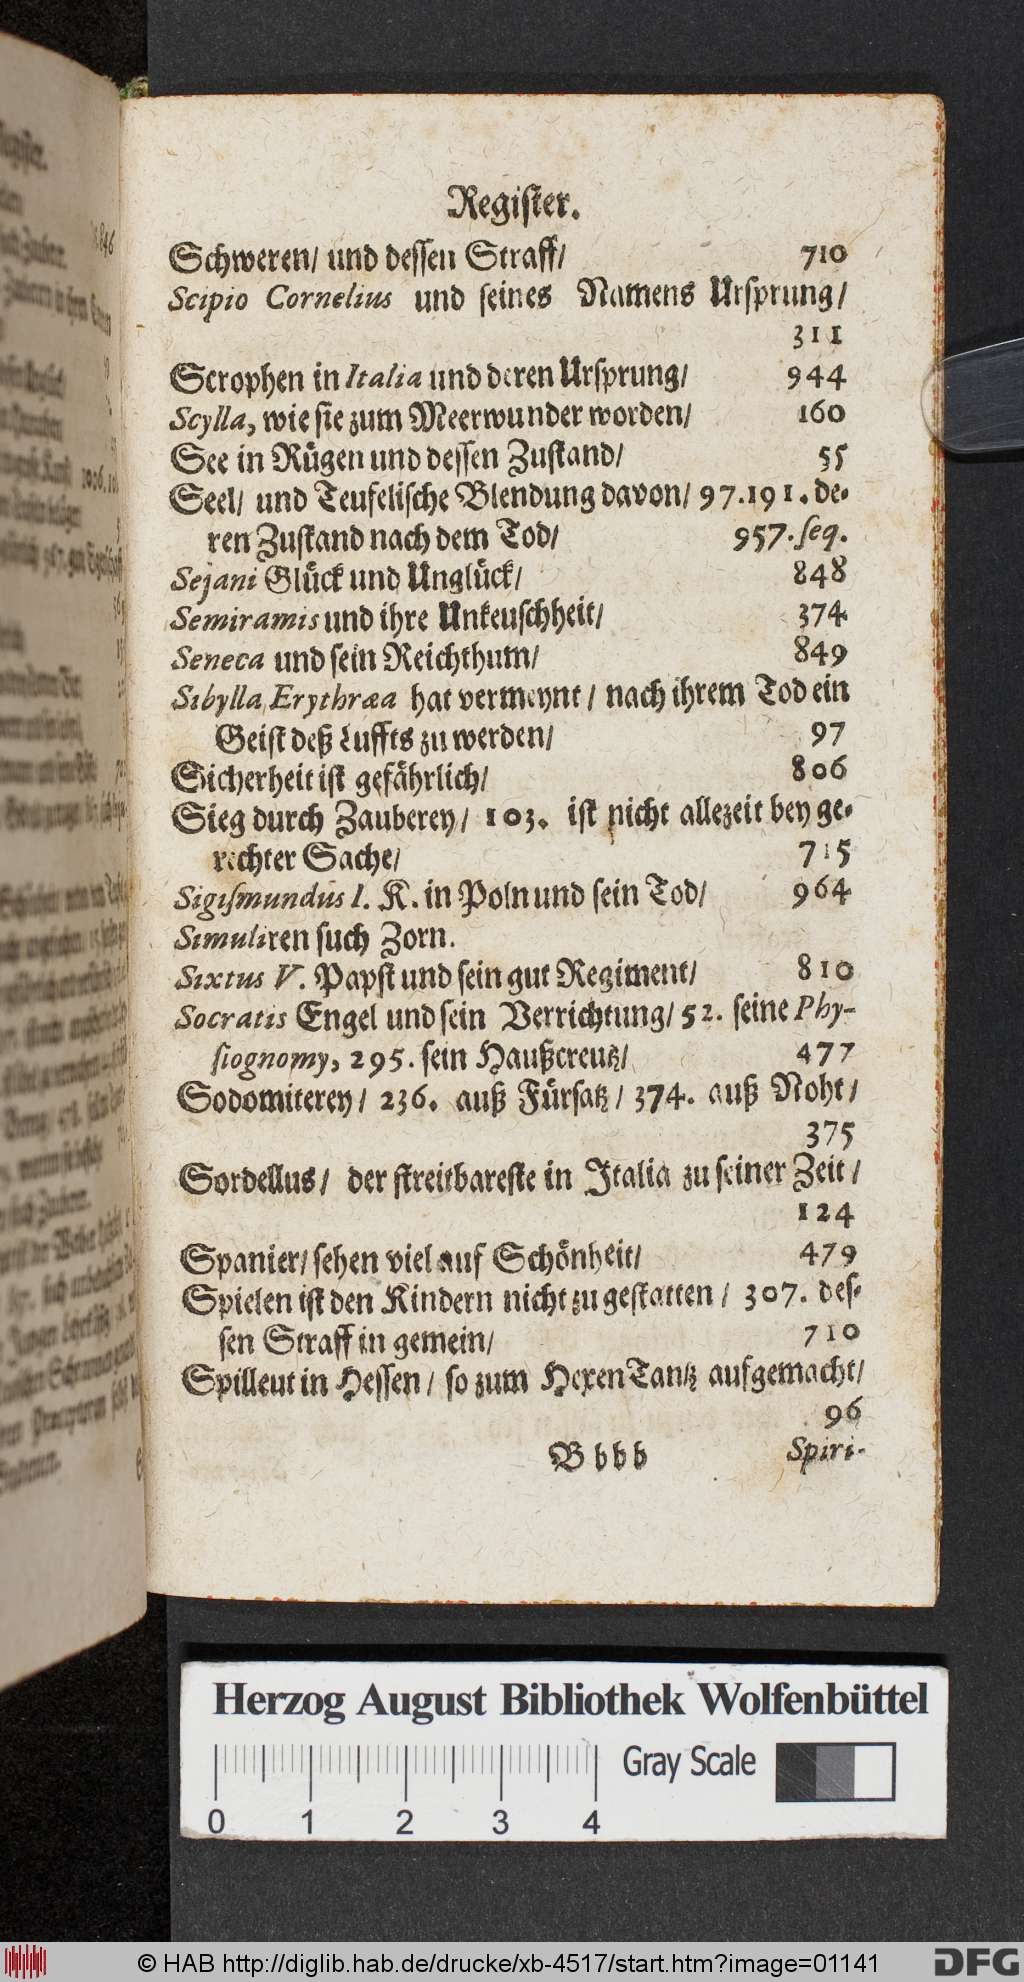 Regiſter.
Schweren/ und deſſen Straff/ 710
Scipio Cornelius und ſeines Namens Urſprung/
311
Scrophen in Italia und deren Urſprung/ 944
Scylla, wie ſie zum Meerwunder worden/ 160
See in Rügen und deſſen Zuſtand/ 55
Seel/ und Teufeliſche Blendung davon/ 97.191. de-
ren Zuſtand nach dem Tod/ 957. ſeq.
Sejani Glück und Unglück/ 848
Semiramis und ihre Unkeuſchheit/ 374
Seneca und ſein Reichthum/ 849
Sibylla Erythræa hat vermeynt / nach ihrem Tod ein
Geiſt deß Luffts zu werden/ 97
Sicherheit iſt gefährlich/ 806
Sieg durch Zauberey/ 103. iſt nicht allezeit bey ge-
rechter Sache/ 715
Sigiſmundus I. K. in Poln und ſein Tod/ 964
Simuliren ſuch Zorn.
Sixtus V. Papſt und ſein gut Regiment/ 810
Socratis Engel und ſein Verrichtung/ 52. ſeine Phy-
ſiognomy, 295. ſein Haußcreutz/ 477
Sodomiterey/ 236. auß Fürſatz / 374. auß Noht /
375
Sordellus/ der ſtreitbareſte in Italia zu ſeiner Zeit /
124
Spanier/ ſehen viel auf Schönheit/ 479
Spielen iſt den Kindern nicht zu geſtatten / 307. deſ-
ſen Straff in gemein/ 710
Spilleut in Heſſen / ſo zum Hexen Tantz aufgemacht/
96
B b b b Spiri-
Herzog August Bibliothek Wolfenbüttel
Gray Scale
0 1 2 3 4
© HAB http://diglib.hab.de/drucke/xb-4517/start.htm?image=01141
DFG